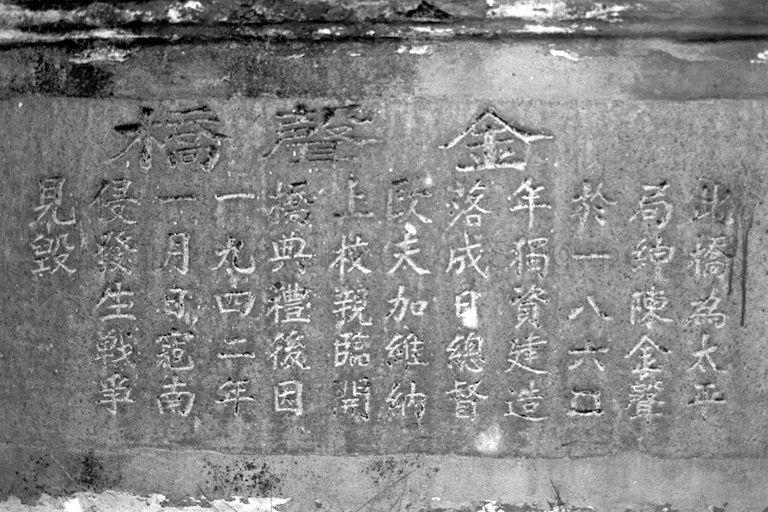 金聲橋
此橋為太平
局紳陳金聲
於一八六
年獨資建造
落成日總督
歐夫加維納
上校親臨開
橋典禮後因
一九四二年
一月日寇南
侵發生戰爭
見毀